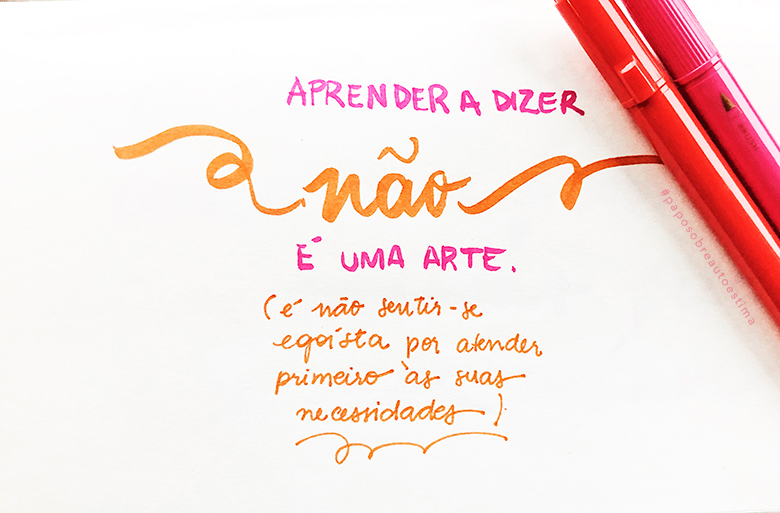 APRENDER A DIZER
não
É UMA ARTE.
(é não sentir-se
egoísta por atender
primeiro às suas
necessidades).
#paposobreautoestima